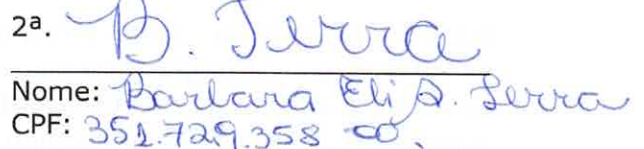 2ª. B. Serra
Nome: Barbara Eli S. Serra
CPF: 351.729.358 00.